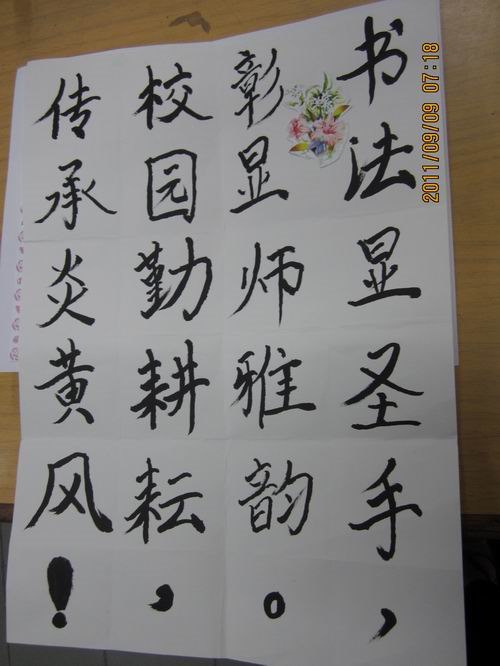 书法显圣手,
彰显师雅韵。
校园勤耕耘,
传承炎黄风!
2011/09/09 07:18